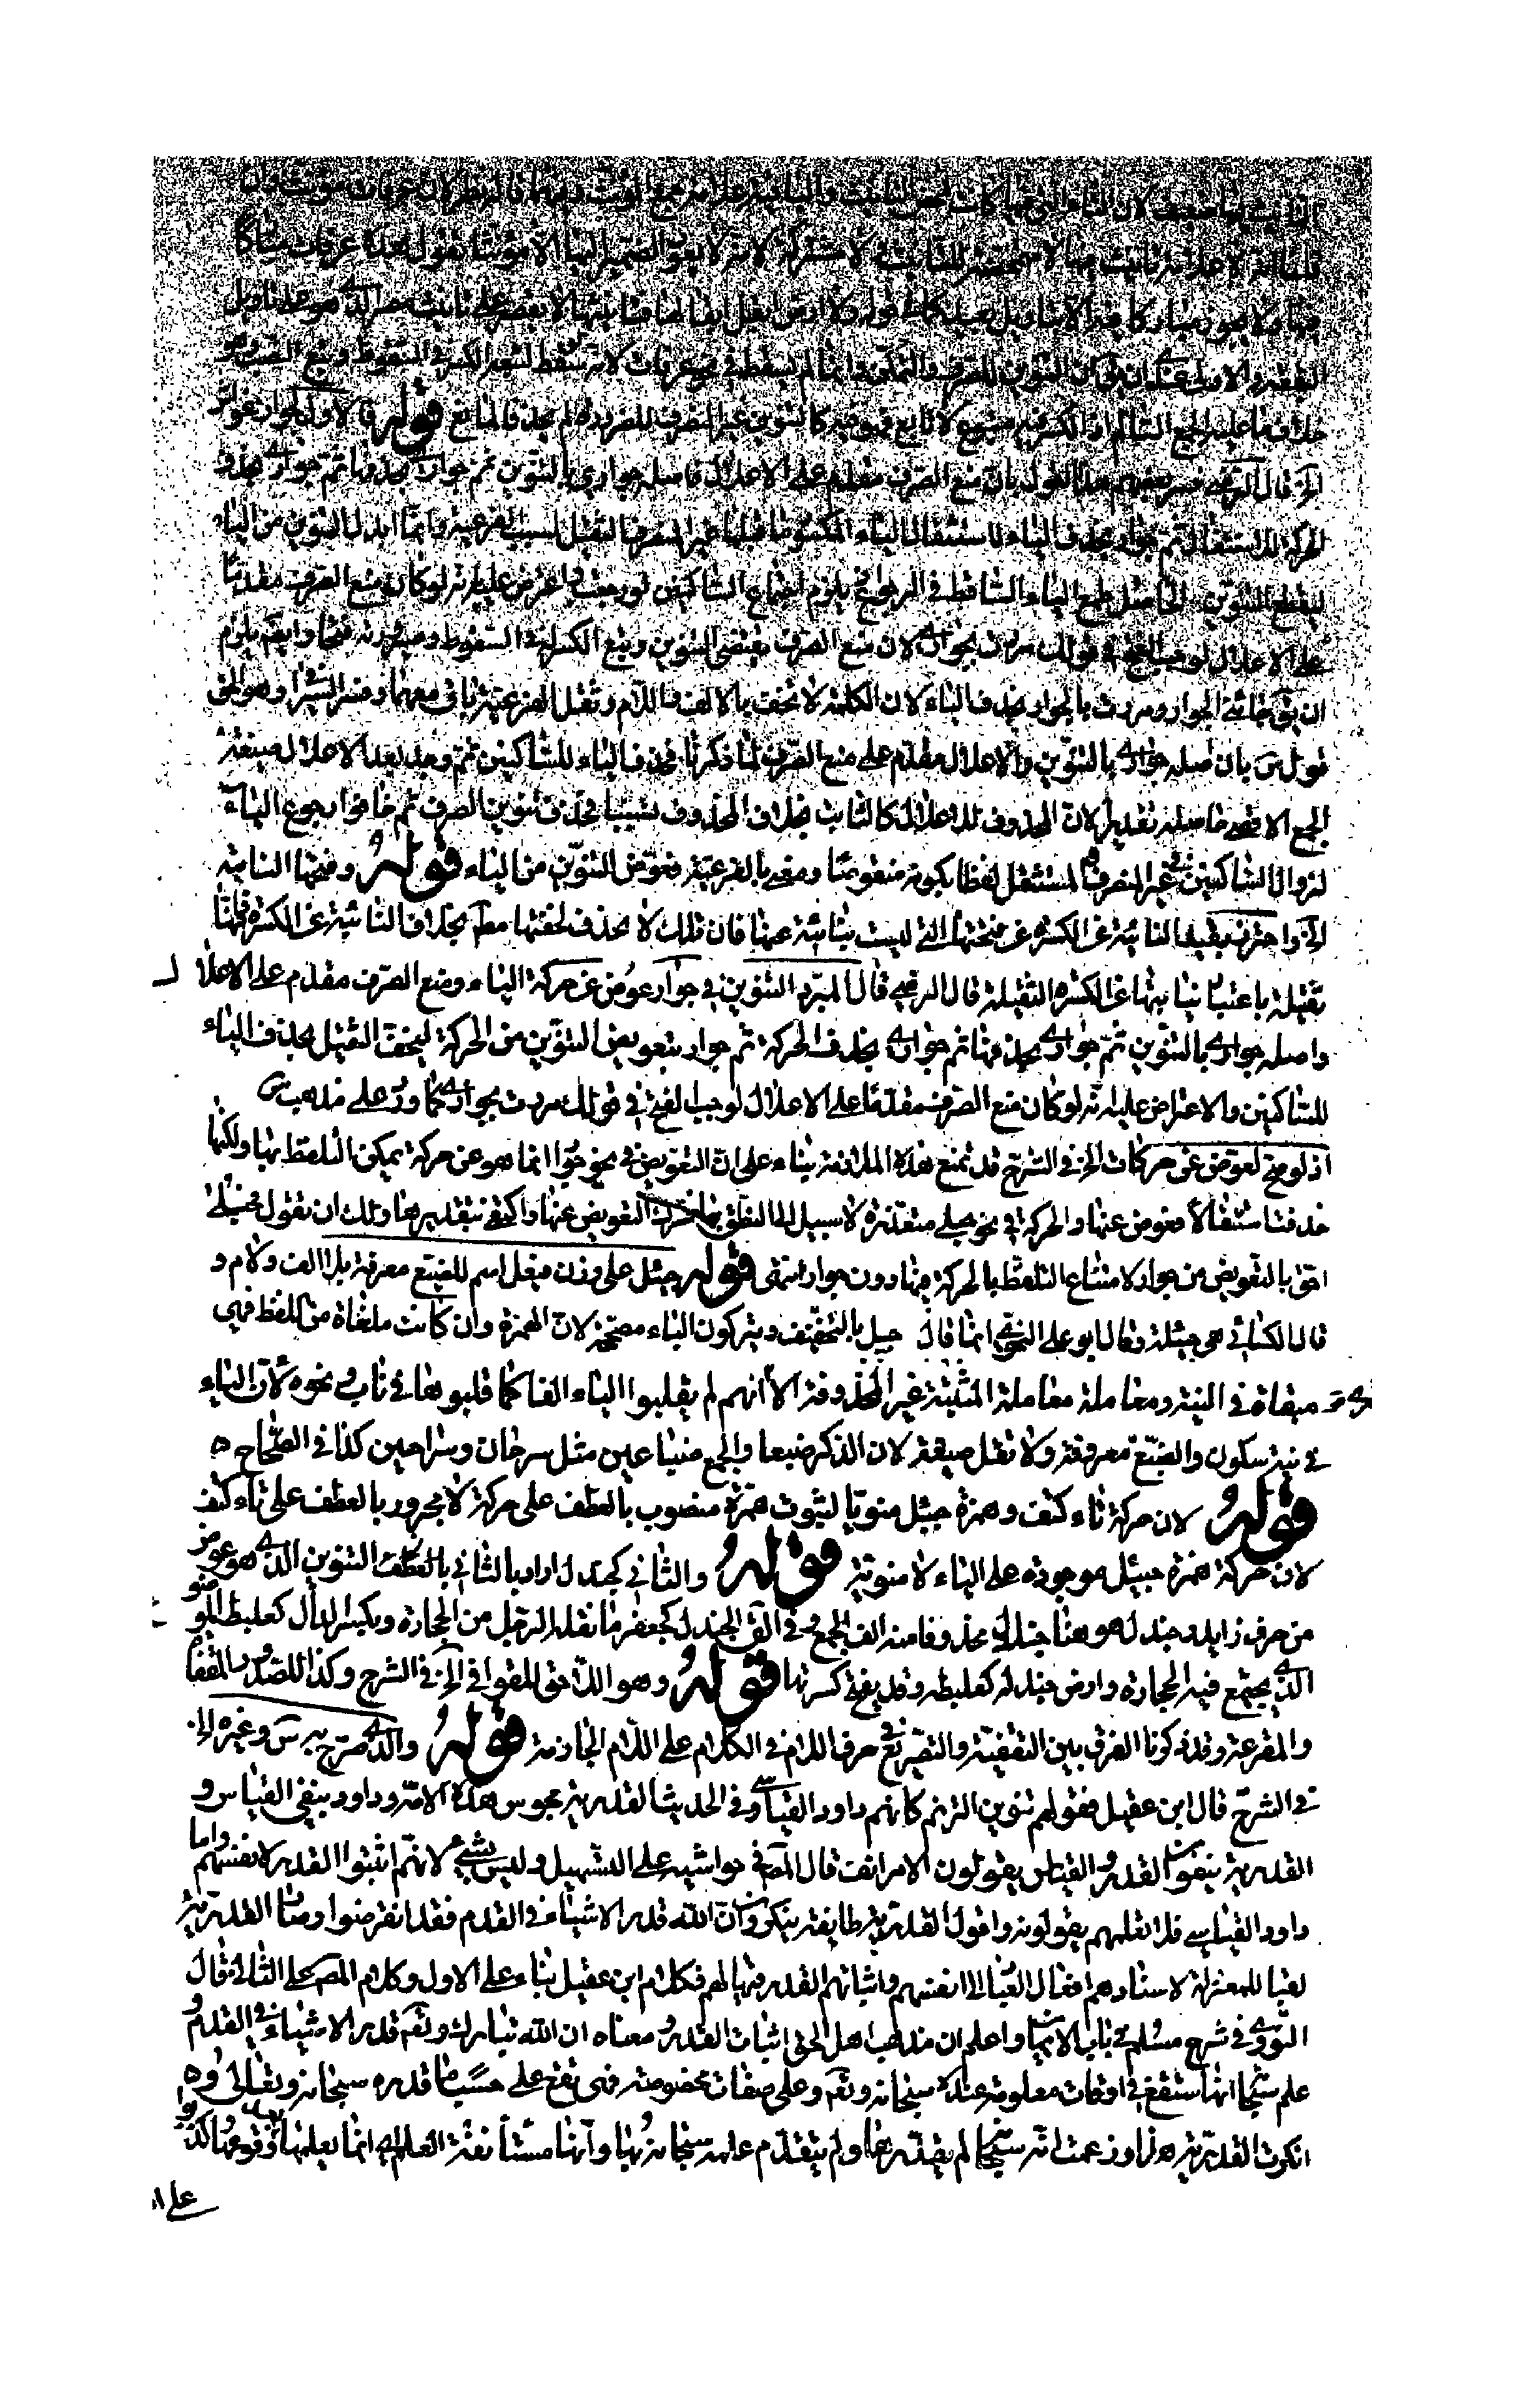 التأنيث فيها ضعيف لان التاء التي فيها كانت لمحض التأنيث
قلنا لانه لا علامة تأنيث فيها لا متمحضة للتأنيث ولا مشتركة لانه لا يعود الضمير اليها الا مؤنثا تقول هذه عرفات مباركا
فيها ولا يجوز مباركا فيه الا بتأويل بعيد كما في قوله ولا ارض ابقل ابقالها فتأنيثها لا يقصر على تأنيث مصر الذي هو على تأويل
البقعة والاولى عندي ان يق ان التنوين للصرف والتمكن وانما لم يسقط في نحو عرفات لانه لو سقط لتبعه الكسر في السقوط وتبع النصب وهو
خلاف ما عليه الجمع السالم اذ الكسر فيه متبوع لا تابع فهو فيه كالتنوين في غير المنصرف للضرورة لم يحذف لمانع قوله فالاول كجوار وغواش
الخ قال الرضي فسر بعضهم هذا القول بان منع الصرف مقدم على الاعلال فاصله جواري بالتنوين ثم جواري بحذفها ثم جواري بحذف
الحركة للاستثقال ثم جوار بحذف الياء لاستثقال الياء المكسور ما قبلها في غير المنصرف الثقيل بسبب الفرعية وانما ابدل التنوين من الياء
ليقطع التنوين الحاصل طمع الياء الساقط في الرجوع اذ يلزم اجتماع الساكنين لو رجعت واعترض عليه بانه لو كان منع الصرف مقدما
على الاعلال لوجب الفتح في قولك مررت بجواري لان منع الصرف يقتضي التنوين وتبع الكسر له في السقوط وصيرورته فتحا وايضا يلزم
ان يق جاءني الجوار ومررت بالجوار بحذف الياء لان الكلمة لا تخف بالالف واللام وثقل الفرعية باق معهما وفسر السيرافي وهو الحق
قول س بان اصله جواري بالتنوين والاعلال مقدم على منع الصرف لما ذكرنا فحذف الياء للساكنين ثم وجد بعد الاعلال صيغة
الجمع الاقصى حاصلة تقديرا لان المحذوف للاعلال كالثابت بخلاف المحذوف نسيا فحذف تنوين الصرف ثم خافوا رجوع الياء
لزوال الساكنين في غير المنصرف المستثقل لفظا بكونه منقوصا ومعنى بالفرعية فعوض التنوين من الياء قوله وفتحها النائبة
الخ واحترز بتقييد النائبة عن الكسرة عن فتحتها التي ليست بنائبة عنها فان تلك لا تحذف لخفتها مطلقا بخلاف النائبة عن الكسرة فانها
ثقيلة باعتبار نيابتها عن الكسرة الثقيلة قال الرضي قال المبرد التنوين في جوار عوض عن حركة الياء ومنع الصرف مقدم على الاعلال
واصله جواري بالتنوين ثم جواري بحذفها ثم جواري بحذف الحركة ثم جوار بتعويض التنوين من الحركة ليخف الثقيل بحذف الياء
للساكنين والاعتراض عليه انه لو كان منع الصرف مقدما على الاعلال لوجب الفتح في قولك مررت بجواري كما ورد على مذهب س
اذ لو صح لعوض عن حركات الخ في الشرح قد تمنع هذه الملازمة بناء على ان التعويض في نحو جوار انما هو عن حركة يمكن التلفظ بها ولكنها
حذفت استثقالا فعوض عنها والحركة في نحو حبلى متعذرة لا سبيل الى النطق بها فترك التعويض عنها واكتفي بتقديرها ولك ان تقول فحبلى
احق بالتعويض من جوار لامتناع التلفظ بالحركة فيها دون جوار انتهى قوله جيئل على وزن فيعل اسم للضبع معرفة بلا الف ولام و
قال الكسائي هي جيئلة وقال ابو علي النحوي انما قال جيل بالتخفيف ويتركون الياء مصححة لان الهمزة وان كانت ملقاة من اللفظ فهي
مبقاة في النية ومعاملة معاملة المثبتة غير المحذوفة الا انهم لم يقلبوا الياء الفا كما قلبوها في ناب ونحوه لان الياء
في نية سكون والضبع معروفة ولا تقل ضبعة لان الذكر ضبعان والجمع ضباعين مثل سرحان وسراحين كذا في الصحاح ه
قوله لان حركة تاء كتف وهمزة جيئل منويا لثبوت همزة منصوب بالعطف على حركة لا مجرور بالعطف على تاء كتف
لان حركة همزة جيئل موجودة على الياء لا منوية قوله والثاني كجندل اراد بالثاني بالعطف التنوين الذي هو عوض
من حرف زايد وجندل هو هنا جنادل محذوفا منه الف الجمع وفي الق الجندل كجعفر ما يقله الرجل من الحجارة ويكسر الدال كعلبط الموضع
الذي يجتمع فيه الحجارة وارض جندلة كعلبطة وقد يفتح كسرتها قوله وهو اللاحق للقوافي الخ في الشرح وكذا للصدور المقفاة
والمفرعة وقد ذكرنا الفرق بين التقفية والتصريع في حرف اللام في الكلام على اللام الجازمة قوله والذي صرح به س وغيره الخ
في الشرح قال ابن عقيل فقولهم تنوين الترنم كانهم داود القياسي وفي الحديث القدرية مجوس هذه الامة وداود ينفي القياس و
القدرية ينفون القدر والقياس يقولون الامر انف قال المص في حواشيه على التسهيل وليس بشيء لانهم اثبتوا القدر لانفسهم واما
داود القياسي فلا نعلمهم يقولونه واقول القدرية طايفة ينكرون ان الله قدر الاشياء في القدم فقد انقرضوا وصار القدرية
لقبا للمعتزلة لاسنادهم افعال العباد الى انفسهم واثباتهم القدر فيها لهم فكلام ابن عقيل بناء على الاول وكلام المص على الثاني قال
النووي في شرح مسلم في باب الايمان واعلم ان مذهب اهل الحق اثبات القدر ومعناه ان الله تبارك وتعم قدر الاشياء في القدم و
علم سبحانه انها ستقع في اوقات معلومة عنده سبحانه وتعم وعلى صفات مخصوصة فهي تقع على حسب ما قدره سبحانه وتعالى
انكرت القدرية هذا وزعمت انه سبحانه لم يقدرها ولم يتقدم علمه سبحانه بها وانها مستأنفة العلم اي انما يعلمها بعد وقوعها وكذبوا
على ا